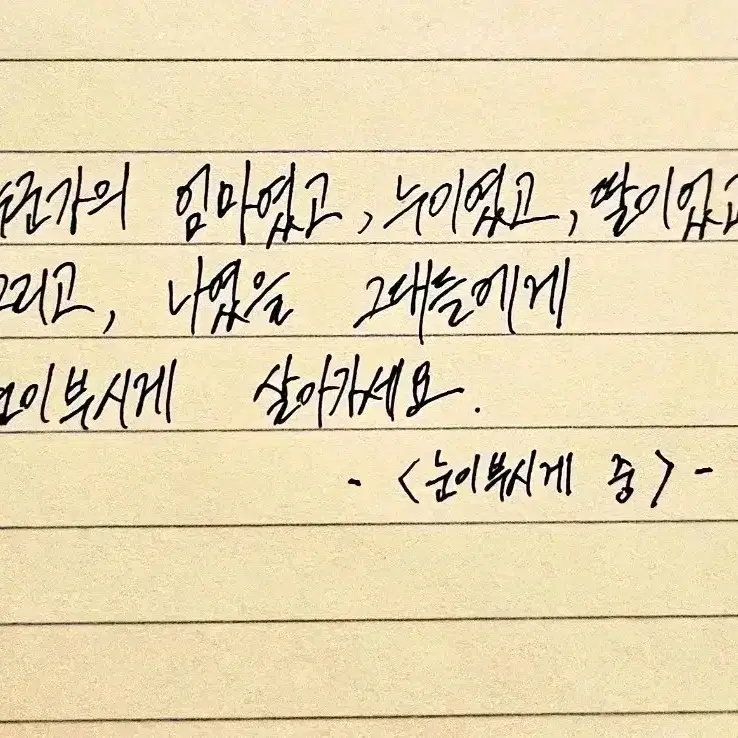 누군가의 엄마였고, 누이였고, 딸이었고
그리고, 나였을 그대들에게
눈이부시게 살아가세요.
- <눈이부시게 중> -